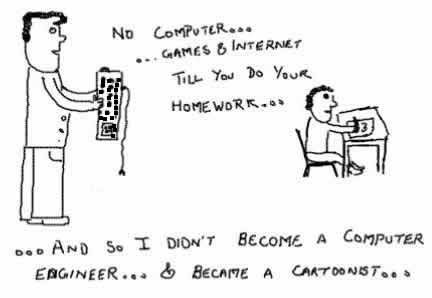 NO COMPUTER...
...GAMES & INTERNET
TILL YOU DO YOUR
HOMEWORK...
3
...AND SO I DIDN'T BECOME A COMPUTER
ENGINEER... & BECAME A CARTOONIST...